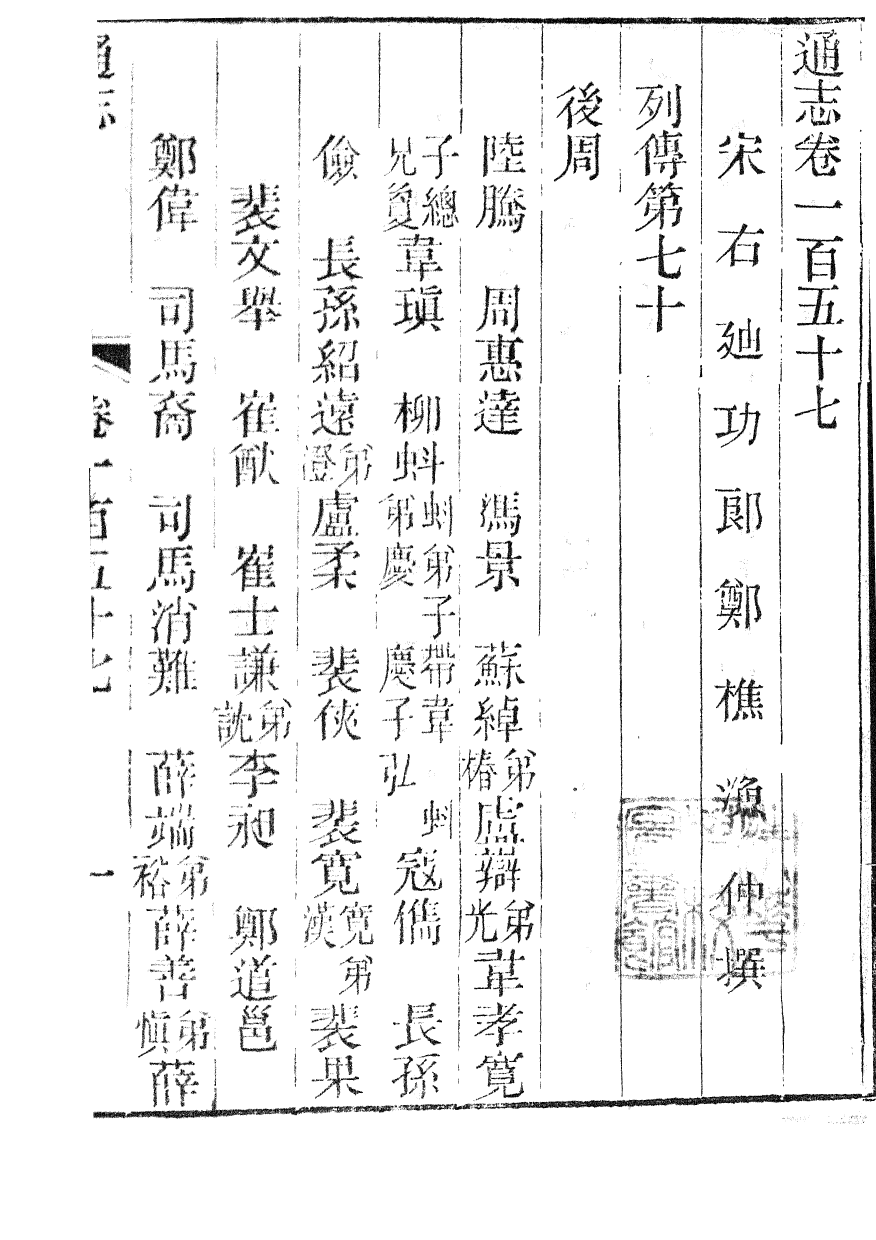 通志卷一百五十七
宋右廸功郎鄭樵漁仲撰
列傳第七十
後周
陸騰　周惠達　馮景　蘇綽弟椿盧辯弟光韋孝寬
子總兄敻韋瑱　柳蚪蚪弟子帶韋　蚪弟慶　慶子弘寇儁　長孫
儉　長孫紹遠弟澄盧柔　裴俠　裴寬寬弟漢裴果
裴文舉　崔猷　崔士謙弟說李昶　鄭道邕
鄭偉　司馬裔　司馬消難　薛端弟裕薛善弟愼薛
通志　卷一百五十七　一